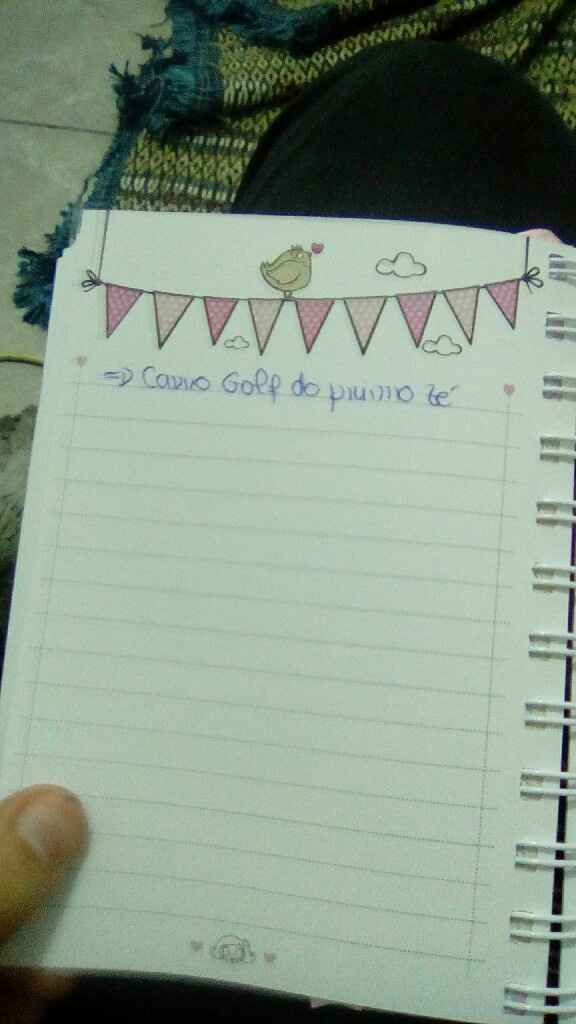 => Carro Golf do primo Zé